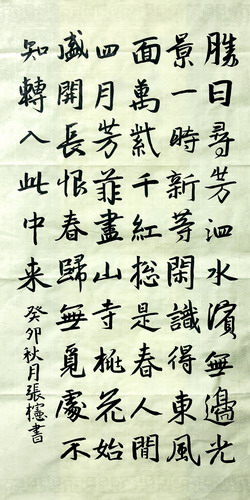 勝日尋芳泗水濱無邊光
景一時新等閑識得東風
面萬紫千紅総是春人間
四月芳菲盡山寺桃花始
盛開長恨春歸無覓處不
知轉入此中来
癸卯秋月張櫶書